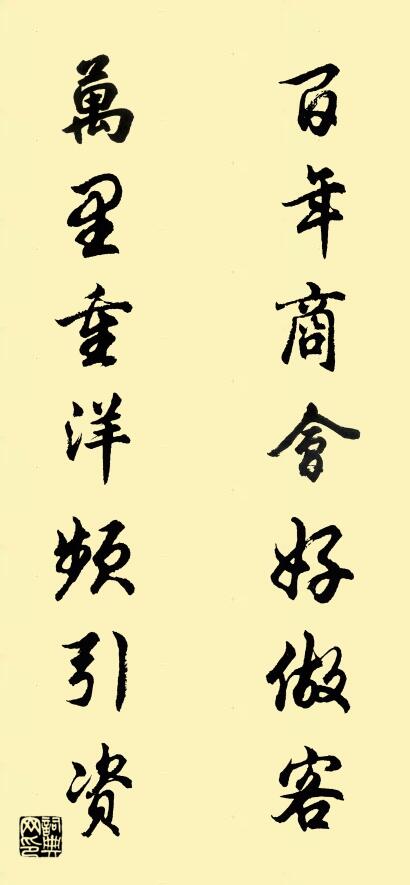 百年商會好做客
萬里重洋頻引資
詞典網印